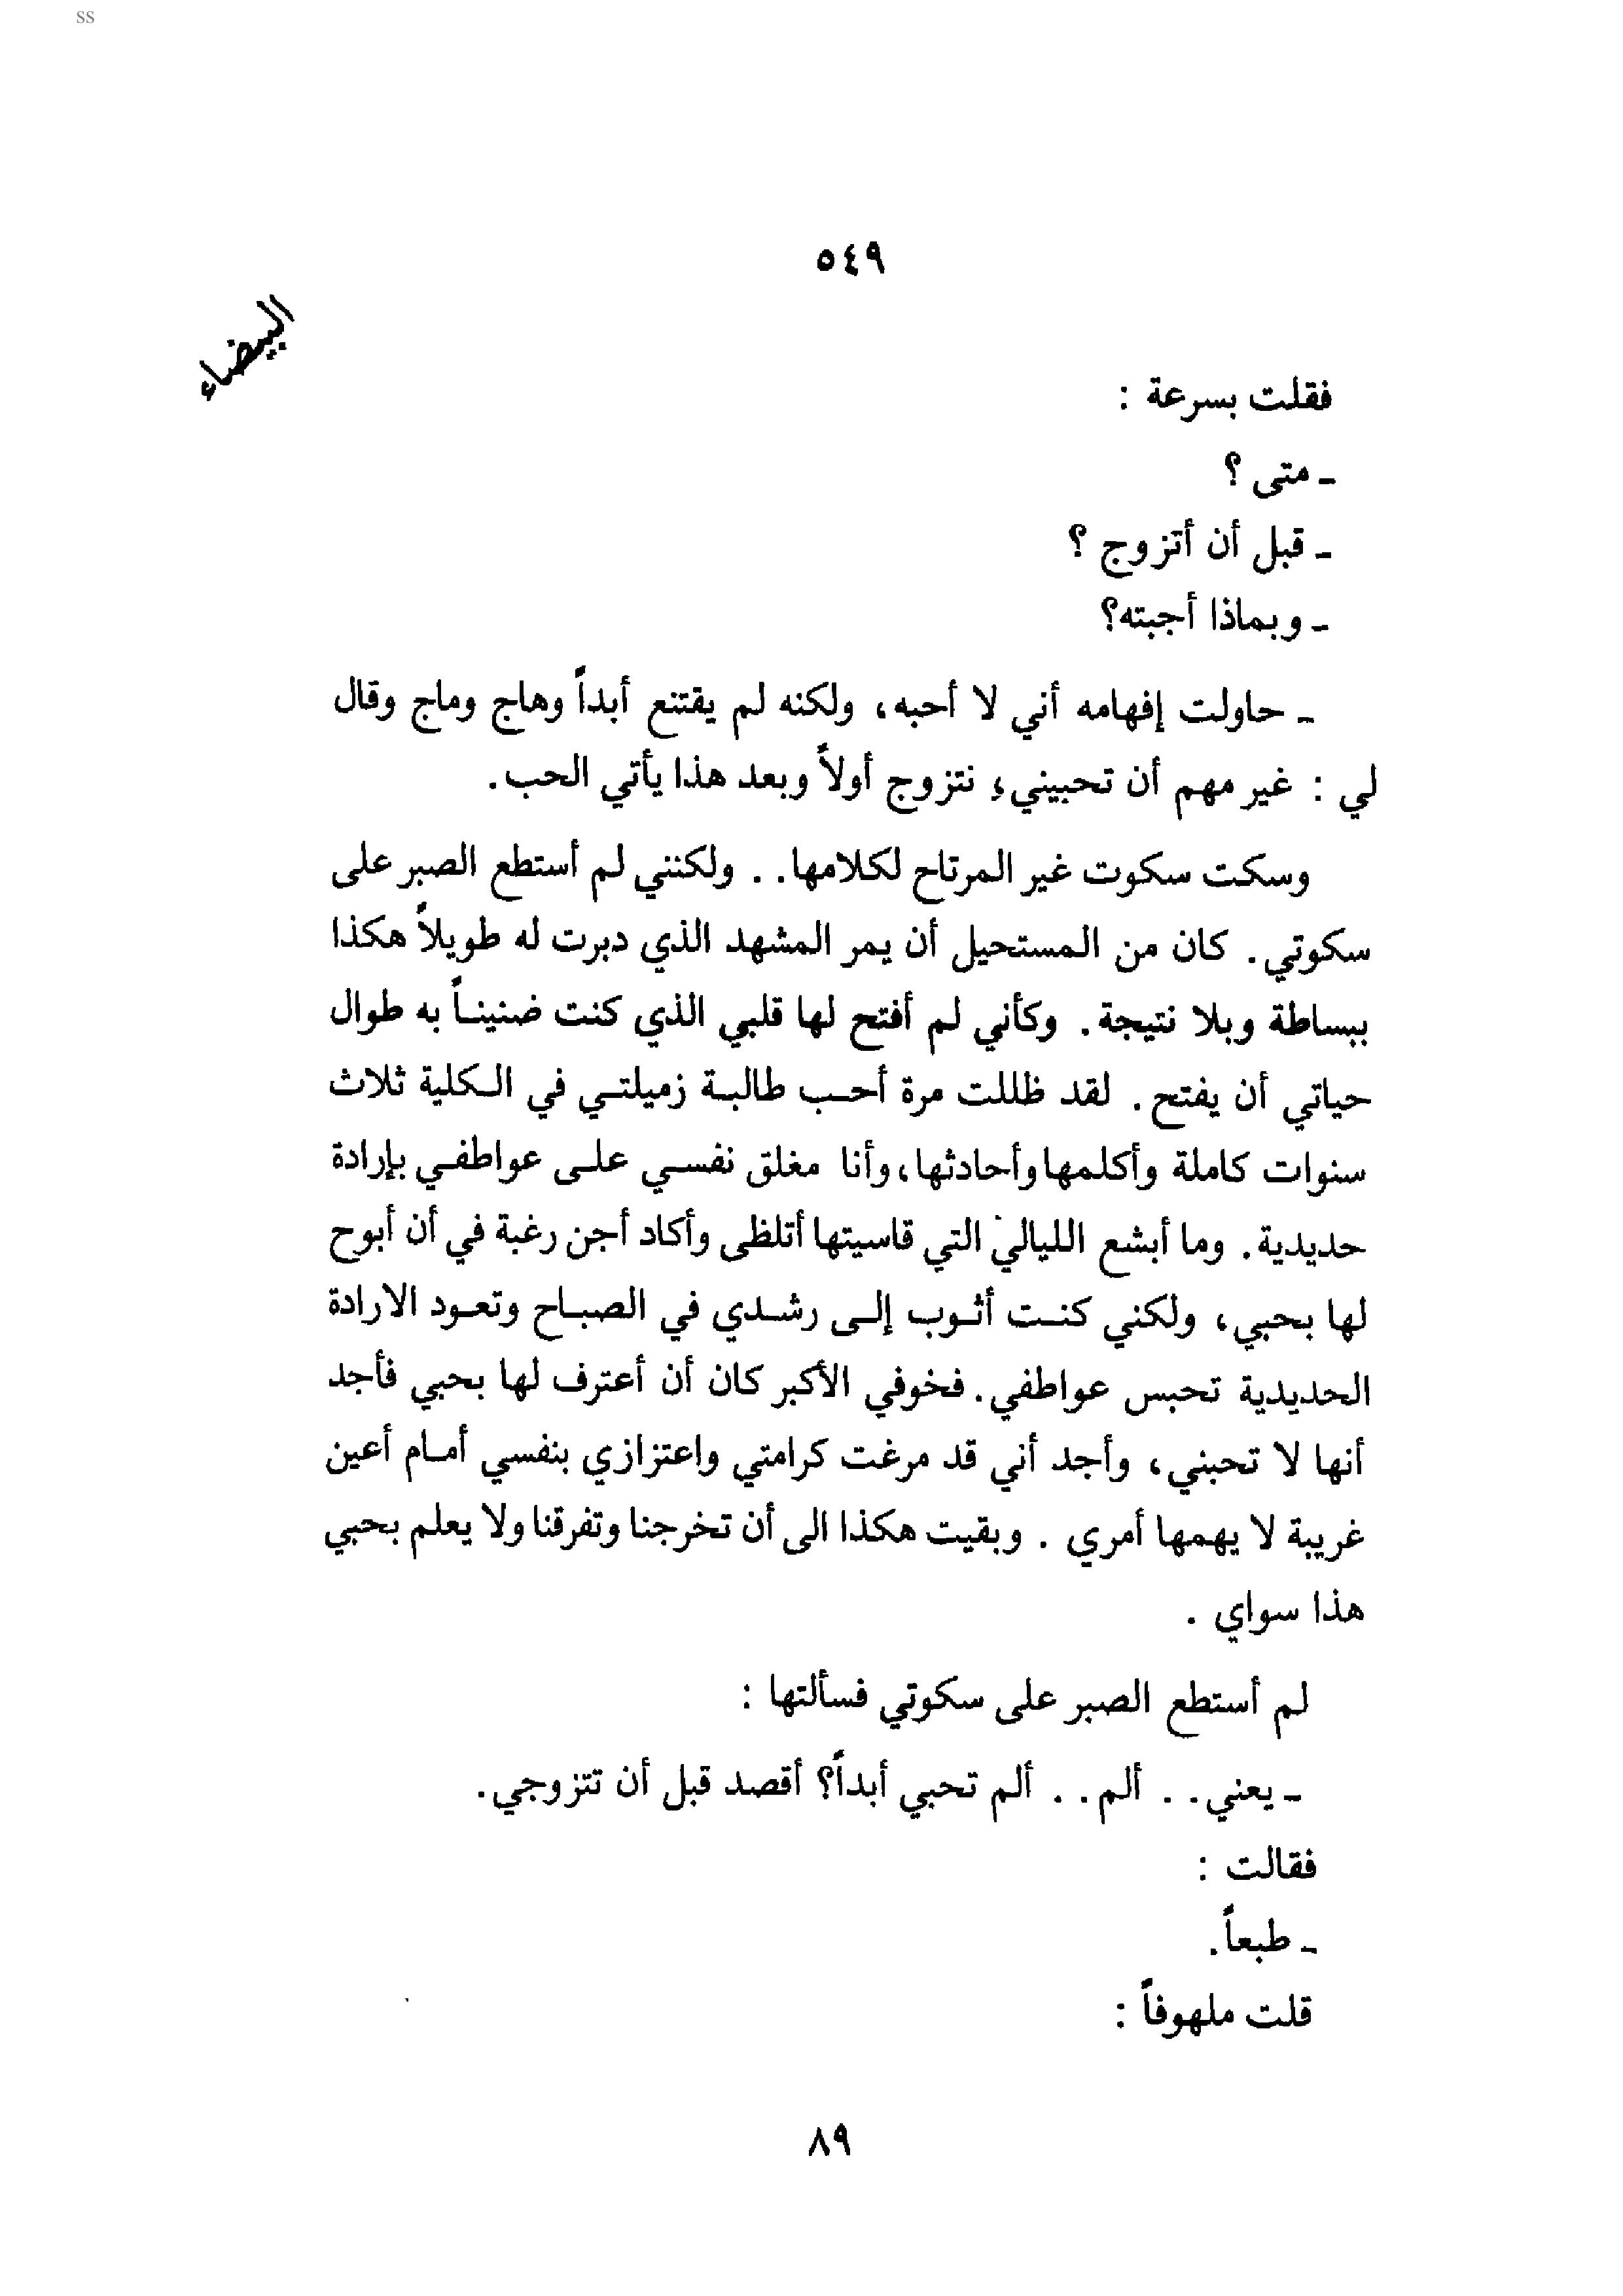 ss
٥٤٩
البيضاء
فقلت بسرعة :
ـ متى ؟
ـ قبل أن أتزوج ؟
ـ وبماذا أجبته؟
ـ حاولت إفهامه أني لا أحبه، ولكنه لم يقتنع أبداً وهاج وماج وقال
لي : غير مهم أن تحبيني، نتزوج أولاً وبعد هذا يأتي الحب.
وسكت سكوت غير المرتاح لكلامها. . ولكنني لم أستطع الصبر على
سكوتي. كان من المستحيل أن يمر المشهد الذي دبرت له طويلاً هكذا
ببساطة وبلا نتيجة. وكأني لم أفتح لها قلبي الذي كنت ضنيناً به طوال
حياتي أن يفتح. لقد ظللت مرة أحب طالبة زميلتي في الكلية ثلاث
سنوات كاملة وأكلمها وأحادثها، وأنا مغلق نفسي على عواطفي بإرادة
حديدية. وما أبشع الليالي التي قاسيتها أتلظى وأكاد أجن رغبة في أن أبوح
لها بحبي، ولكني كنت أثوب إلى رشدي في الصباح وتعود الارادة
الحديدية تحبس عواطفي. فخوفي الأكبر كان أن أعترف لها بحبي فأجد
أنها لا تحبني، وأجد أني قد مرغت كرامتي واعتزازي بنفسي أمام أعين
غريبة لا يهمها أمري . وبقيت هكذا الى أن تخرجنا وتفرقنا ولا يعلم بحبي
هذا سواي .
لم أستطع الصبر على سكوتي فسألتها :
ـ يعني. . ألم. . ألم تحبي أبداً؟ أقصد قبل أن تتزوجي.
فقالت :
ـ طبعاً.
قلت ملهوفاً :
٨٩